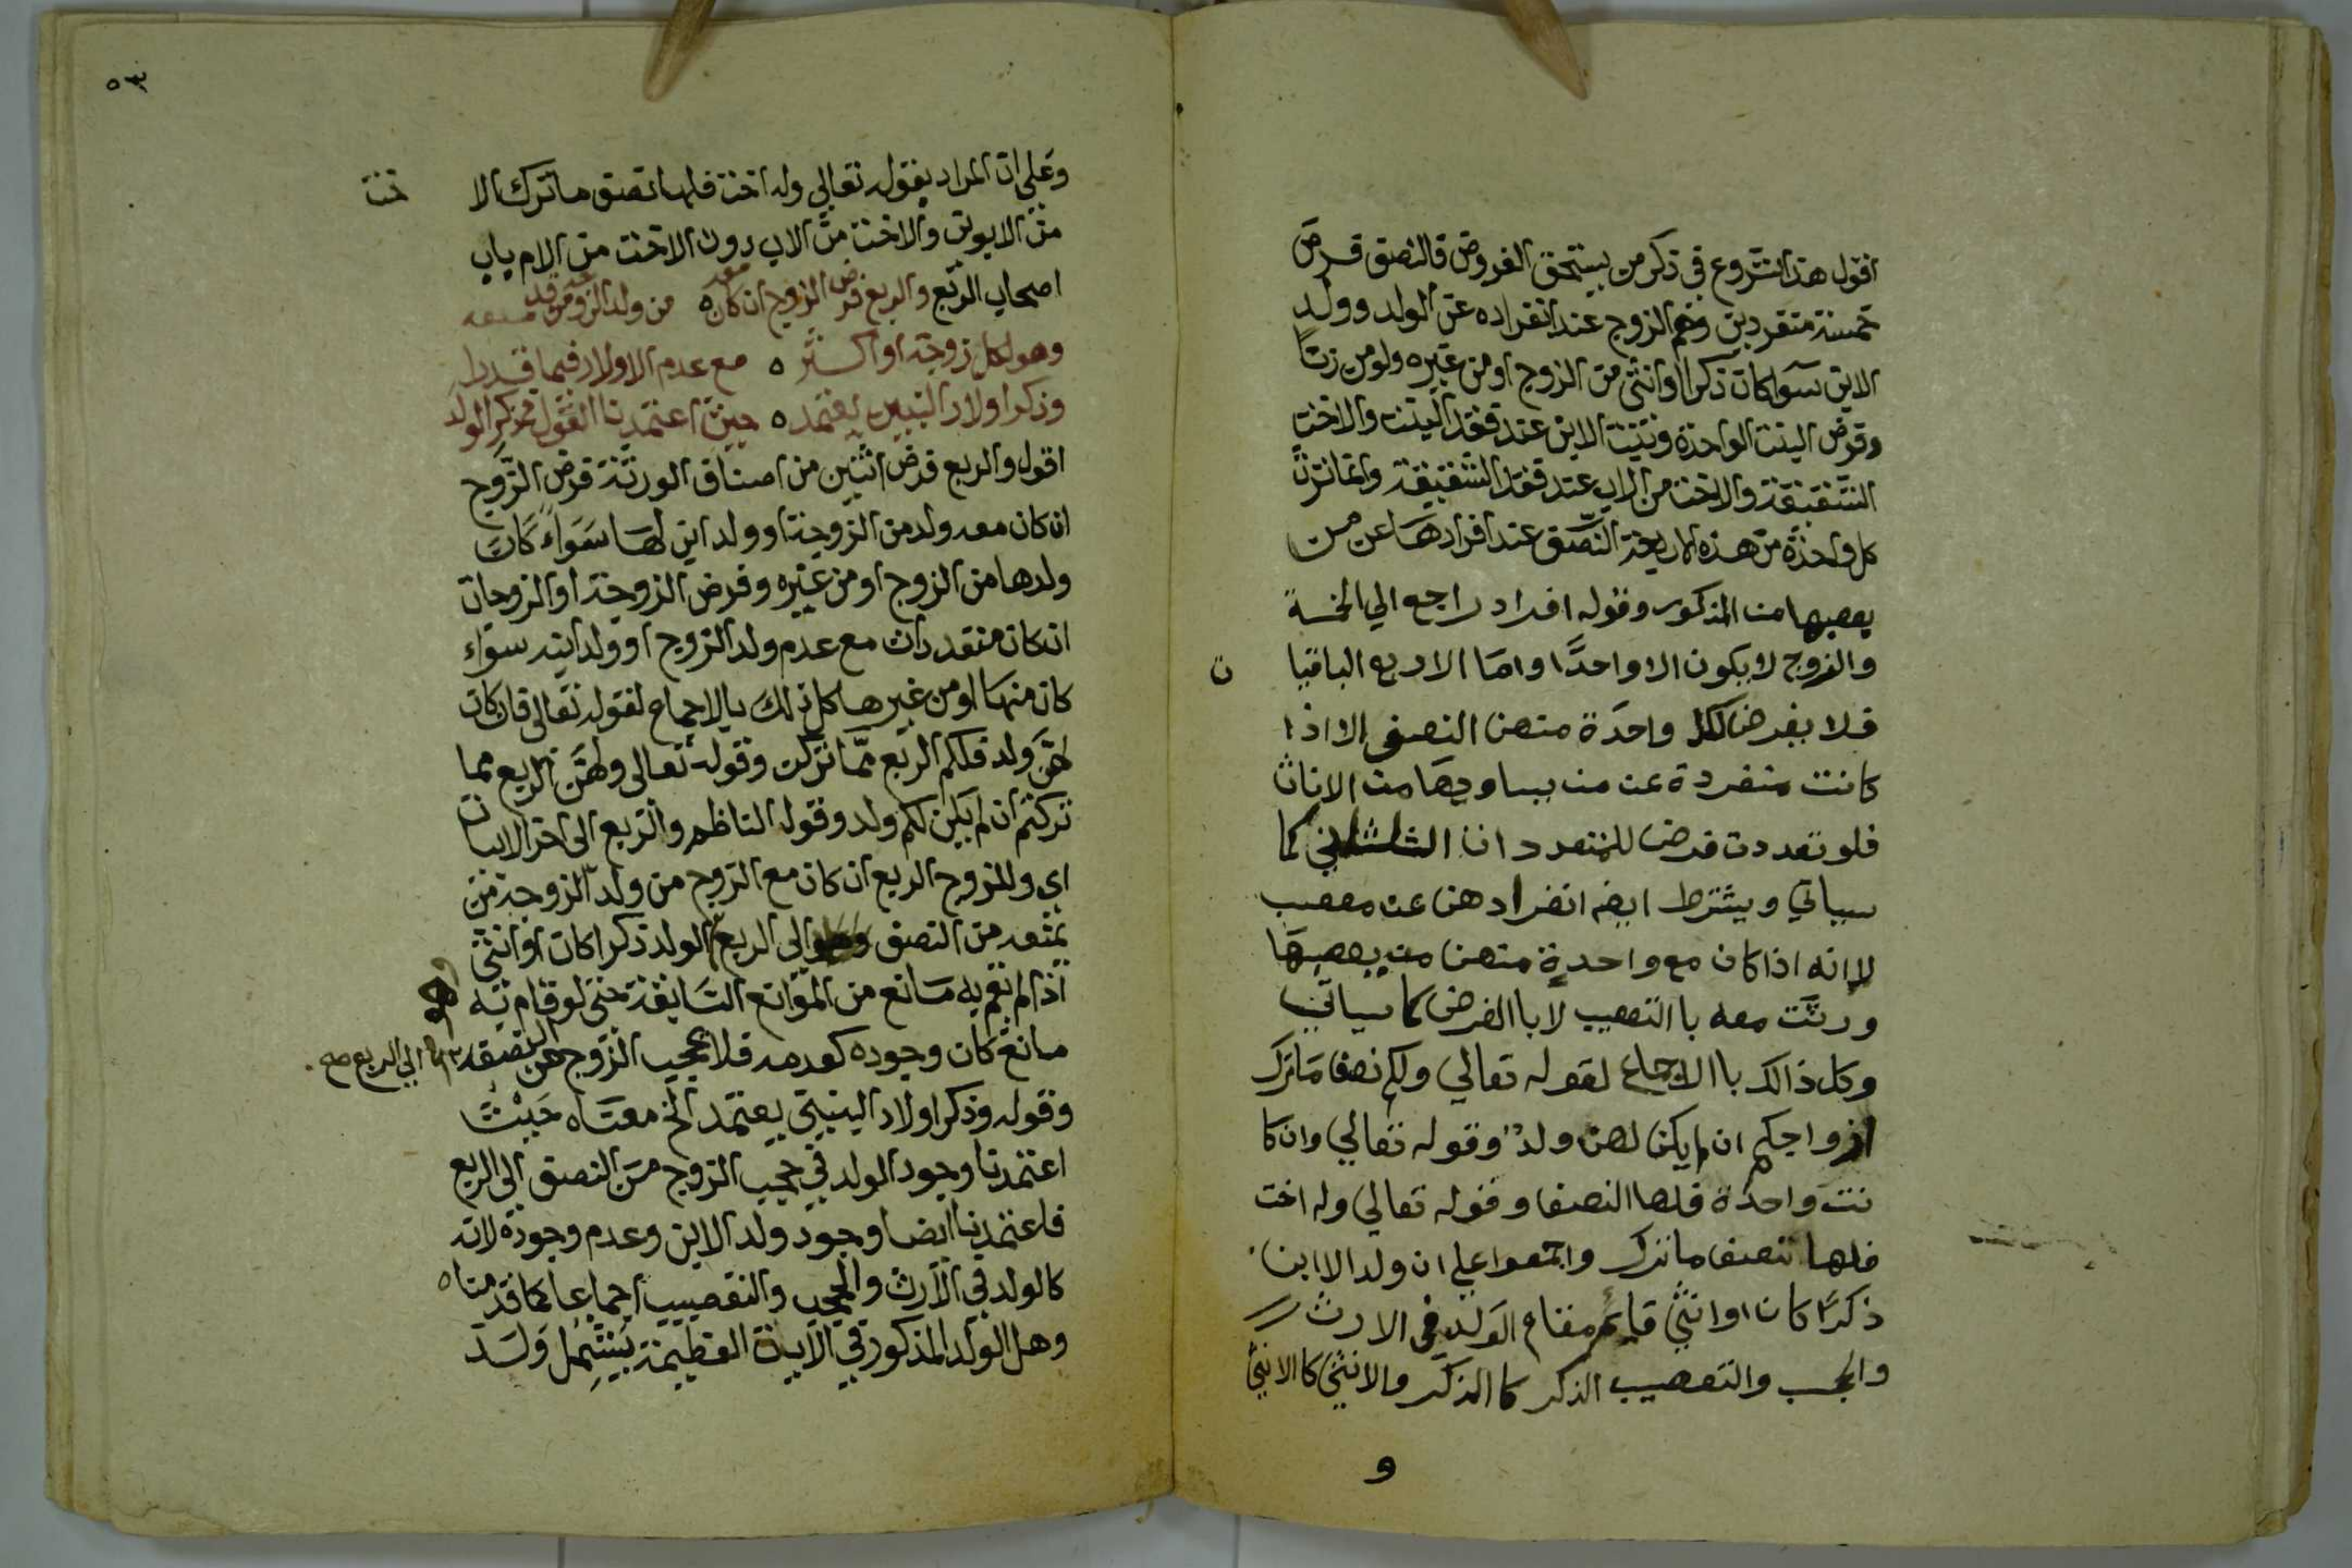 اقول هذا شروع في ذكر من يستحق الفروض فالنصف فرض
خمسة منفردين وهم الزوج عند انفراده عن الولد وولد
الابن سوا كان ذكرا او انثى من الزوج او من غيره ولو من زنًا
وفرض البنت الواحدة وبنت الابن عند فقد البنت والاخت
الشقيقة والاخت من الاب عند فقد الشقيقة وانما ترث
كل واحدة من هذه الاربعة النصف عند افرادها عن من
يعصبها من المذكور وقوله افراد راجع الي الخمسة
والزوج لا يكون الا واحدًا واما الاربع الباقيا ت
فلا يفرض لكل واحدة منهن النصف الا اذا
كانت منفردة عن من يساويها من الاناث
فلو تعددت فرض للمتعدد انا الثلثاني كما
سياتي ويشترط ايضه انفرادهن عن معصب
لاانه اذا كان مع واحدة منهن من يعصبها
ورثت معه باالتعصيب لا باالفرض كما سياتي
وكل ذالك باالاجماع لقوله تعالي ولكم نصف ما ترك
ازواجكم ان لم يكن لهن ولد وقوله تعالي وان كا
نت واحدة فلها النصف وقوله تعالي وله اخت
فلها نصف ما ترك واجمعوا علي ان ولد الاابن
ذكرًا كان او انثي قايم مقام الولد في الارث
والحجب والتعصيب الذكر كاالذكر والانثي كاالانثي
و
٥٣
وعلي ان المراد بقوله تعالي وله اخت فلها نصف ما ترك الا خت
من الابوين والاخت من الاب دون الاخت من الام باب
اصحاب الربع والربع فرض الزوج ان كان معه ه من ولد الزوجة من قد منعه
وهو لكل زوجة او اكثر ه مع عدم الاولاد فيما قدرا
وذكر اولاد البنين يعتمد ه حيث اعتمدنا القول في ذكر الولد
اقول والربع فرض اثنين من اصناف الورثة فرض الزوج
ان كان معه ولد من الزوجة او ولد ابن لها سواءً كان
ولدها من الزوج او من غيره وفرض الزوجة او الزوجات
ان كان متعددات مع عدم ولد الزوج او ولد ابنه سواء
كان منها او من غيرها كل ذلك بالاجماع لقوله تعالى فان كان
لهن ولد فلكم الربع مما تركن وقوله تعالى ولهن الربع مما
تركتم ان لم يكن لكم ولد وقوله الناظم والربع الى اخر الابيات
اي وللزوج الربع ان كان مع الزوج من ولد الزوجة من
يمنعه من النصف الى الربع الولد ذكرا كان او انثى
اذا لم يقم به مانع من الموانع السابقة حتى لو قام به
مانع كان وجوده كعدمه فلا يحجب الزوج من النصف الي الربع صح
وقوله وذكر اولاد البنين يعتمد الخ معناه حيث
اعتمدنا وجود الولد في حجب الزوج من النصف الى الربع
فاعتمدنا ايضا وجود ولد الابن وعدم وجوده لانه
كالولد في الارث والحجب والتعصيب اجماعا كما قدمناه
وهل الولد المذكور في الاية العظيمة يشمل ولد